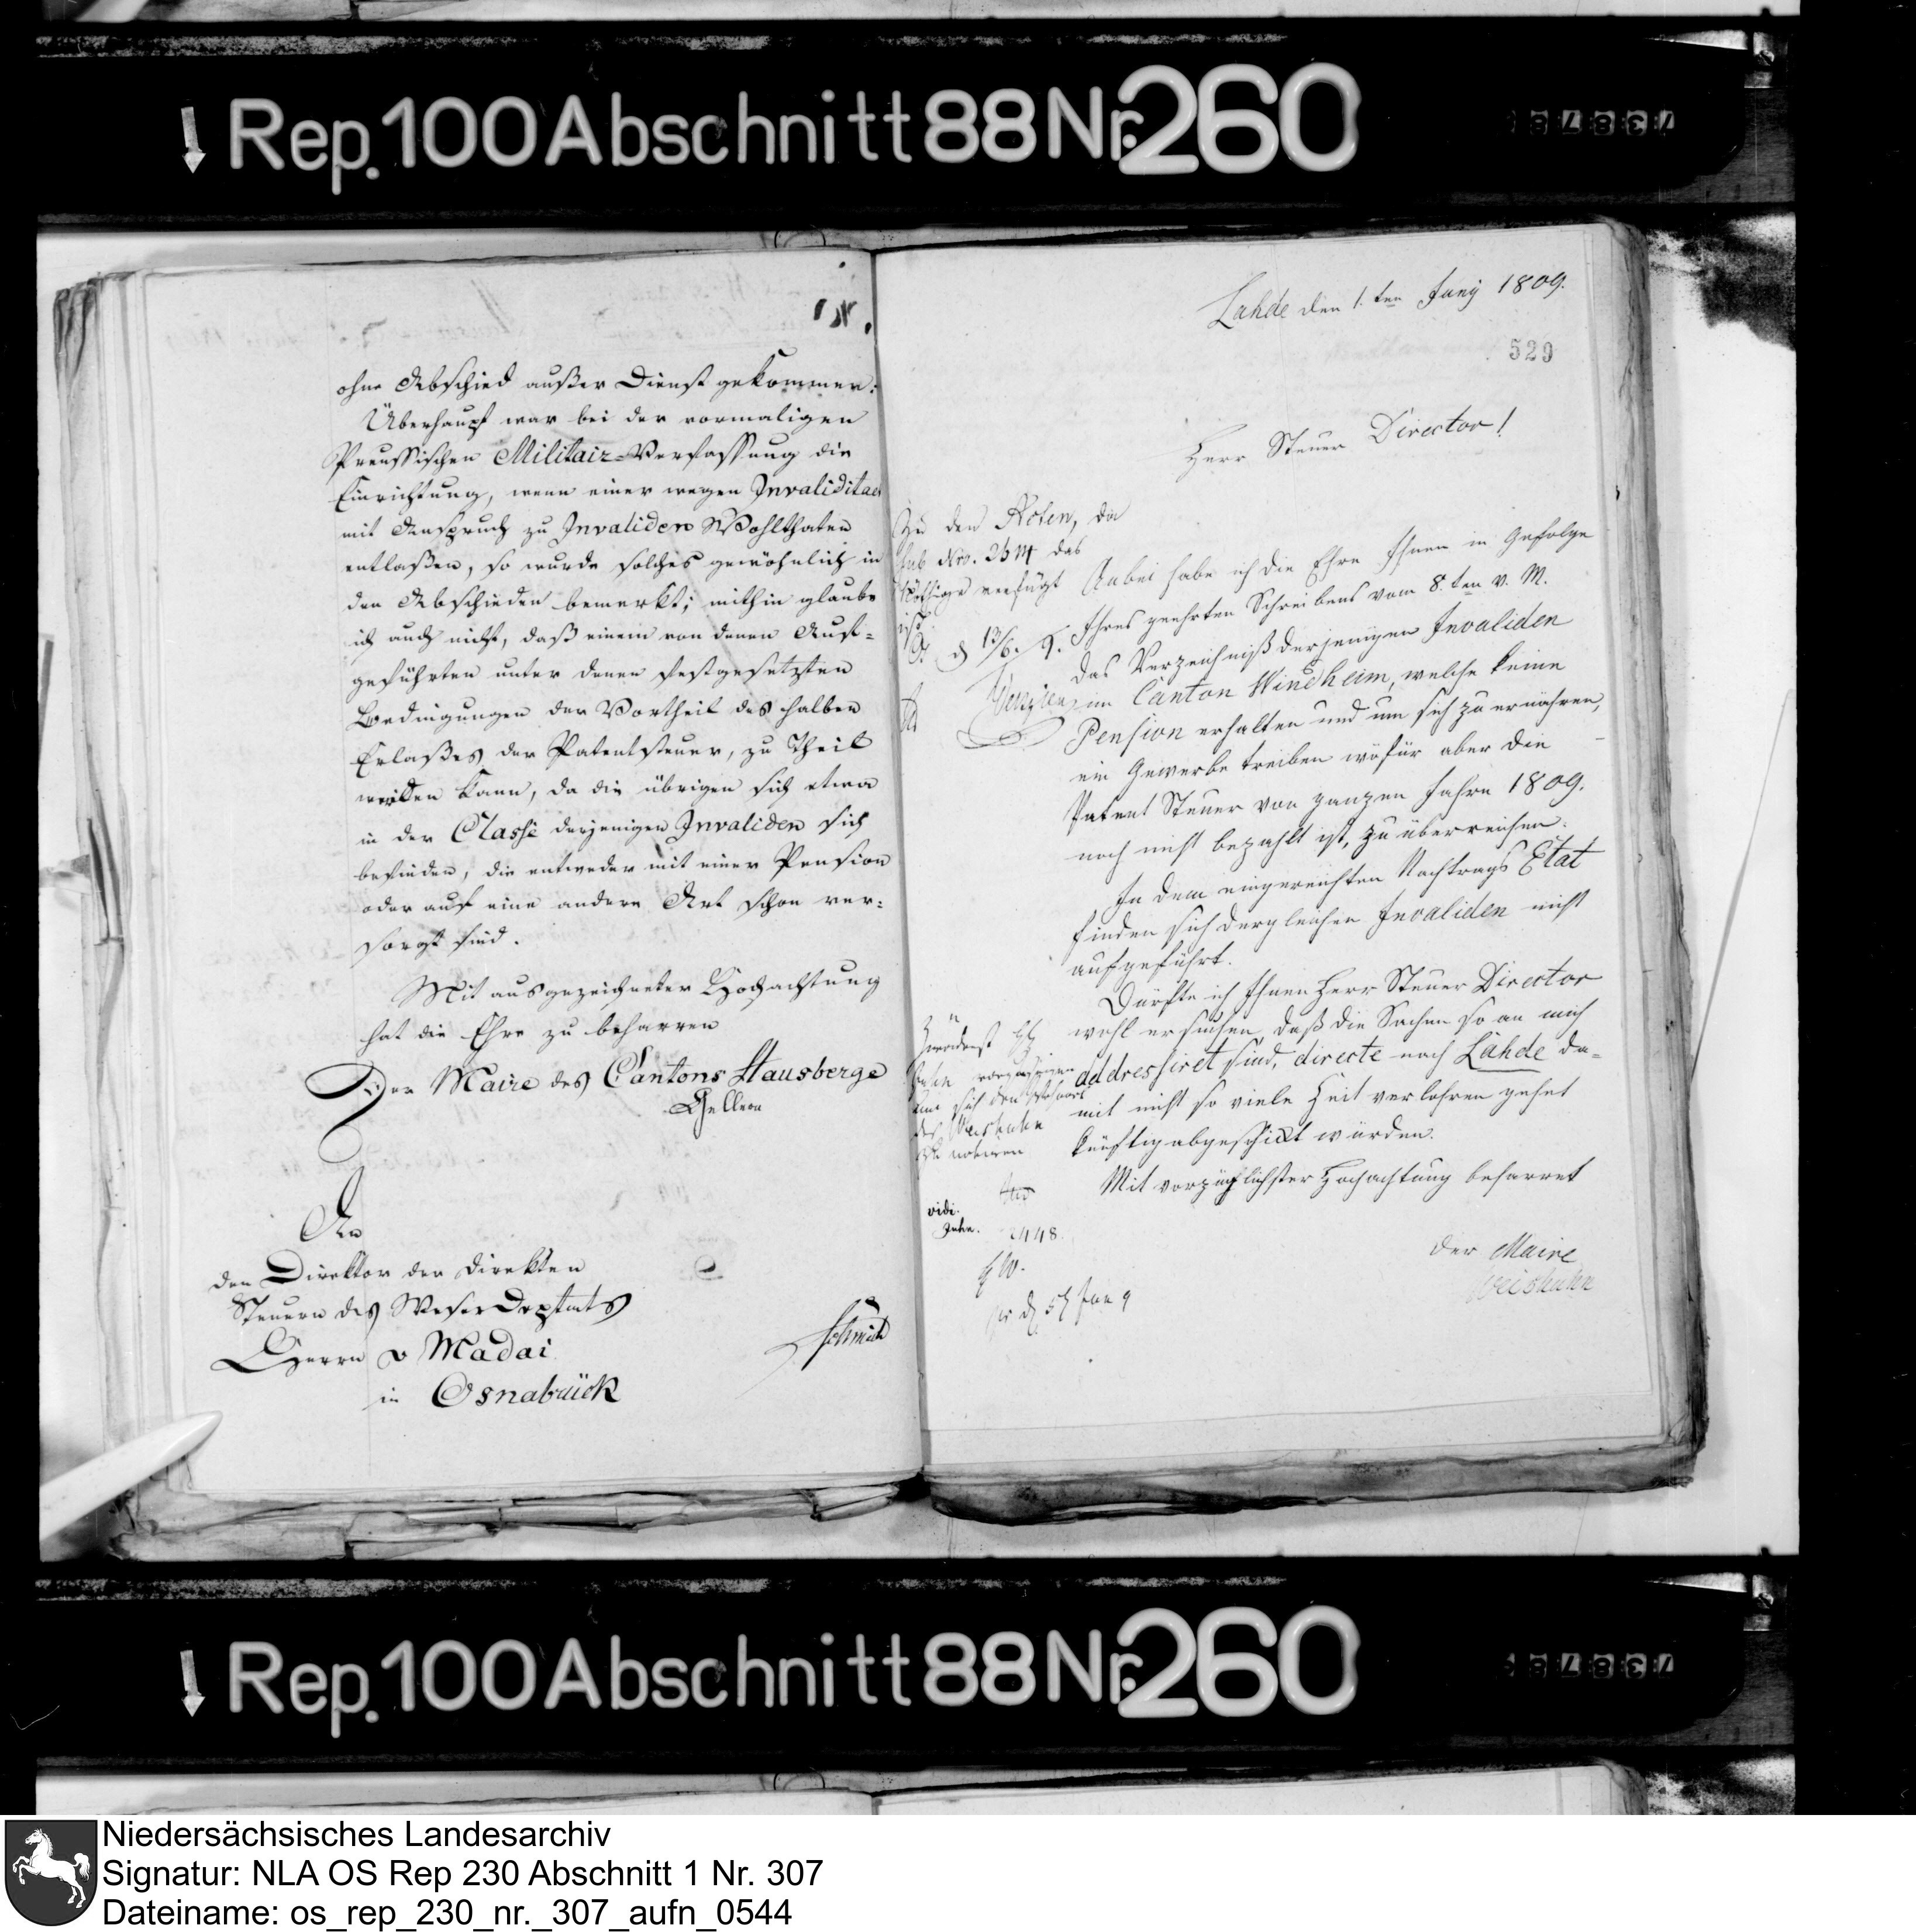 Rep. 100 Abschnitt 88 Nr. 260
ohne Abschied außer Dienst gekommen:
Überhaupt war bei der vormaligen
Preussischen Militair-Verfassung die
Einrichtung, wenn einer wegen Invaliditaet
mit Anspruch zu Invaliden Wohlthaten
entlaßen, so wurde solches gewöhnlich in
den Abschieden bemerkt; mithin glaube
ich auch nicht, daß einem von denen Auf-
geführten unter denen festgesetzten
Bedingungen der Vortheil des halben
Erlaßes der Patentsteuer, zu Theil
werden kann, da die übrigen sich etwa
in der Classe derjenigen Invaliden sich
befinden, die entweder mit einer Pension
oder auf eine andere Art schon ver-
sorgt sind.
Mit ausgezeichneter Hochachtung
hat die Ehre zu beharren
Der Maire des Cantons Hausberge
An
den Direktor der direkten
Steuern des Weser Deptmts
Herrn v Madai
in Osnabrück
Schmidt
Lahde den 1.ten Juny 1809.
529
Herr Steuer Director!
Zu den Acten, da
sub Nro. das
Nöthige verfügt
ist
13/6. 9.
Anbei habe ich die Ehre Ihnen in Gefolge
Ihres geehrten Schreibens vom 8.ten v. M.
das Verzeichniß derjenigen Invaliden
im Canton Windheim, welche keine
Pension erhalten und um sich zu ernähren,
ein Gewerbe treiben wofür aber die
Patent Steuer von ganzen Jahre 1809.
noch nicht bezahlt ist, zu überreichen.
In dem eingereichten Nachtrags Etat
finden sich dergleichen Invaliden nicht
aufgeführt.
Dürfte ich Ihnen Herr Steuer Director
wohl ersuchen, daß die Sachen so an mich
addressiret sind, directe nach Lahde da-
mit nicht so viele Zeit verlohren gehet
künftig abgeschickt würden.
Mit vorzüglichster Hochachtung beharret
um sich den Wohnort
des Weishuhn
zu notiren
vidi.
2448.
der Maire
Weishuhn
Rep. 100 Abschnitt 88 Nr. 260
Niedersächsisches Landesarchiv
Signatur: NLA OS Rep 230 Abschnitt 1 Nr. 307
Dateiname: os_rep_230_nr._307_aufn_0544